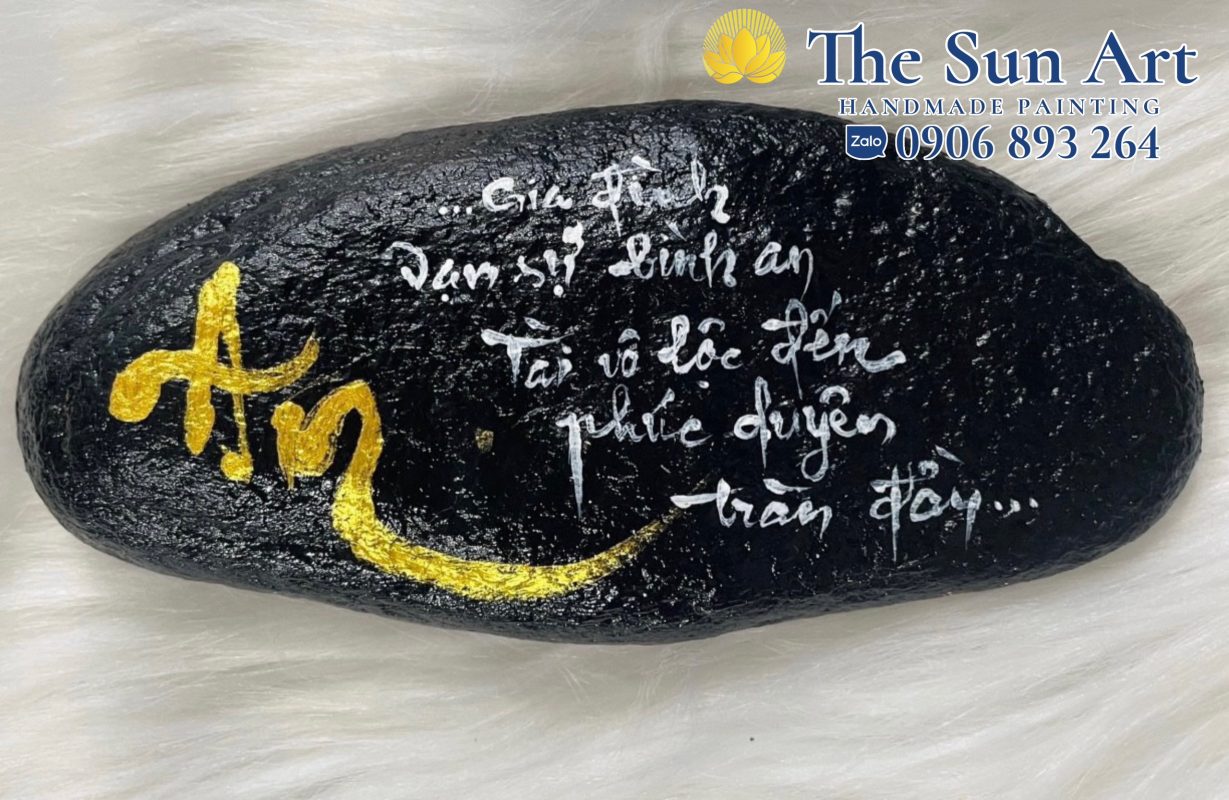 The Sun Art
HANDMADE PAINTING
Zalo 0906 893 264
An
...Gia đình
Vạn sự bình an
Tài vô lộc đến
phúc duyên
tràn đầy...